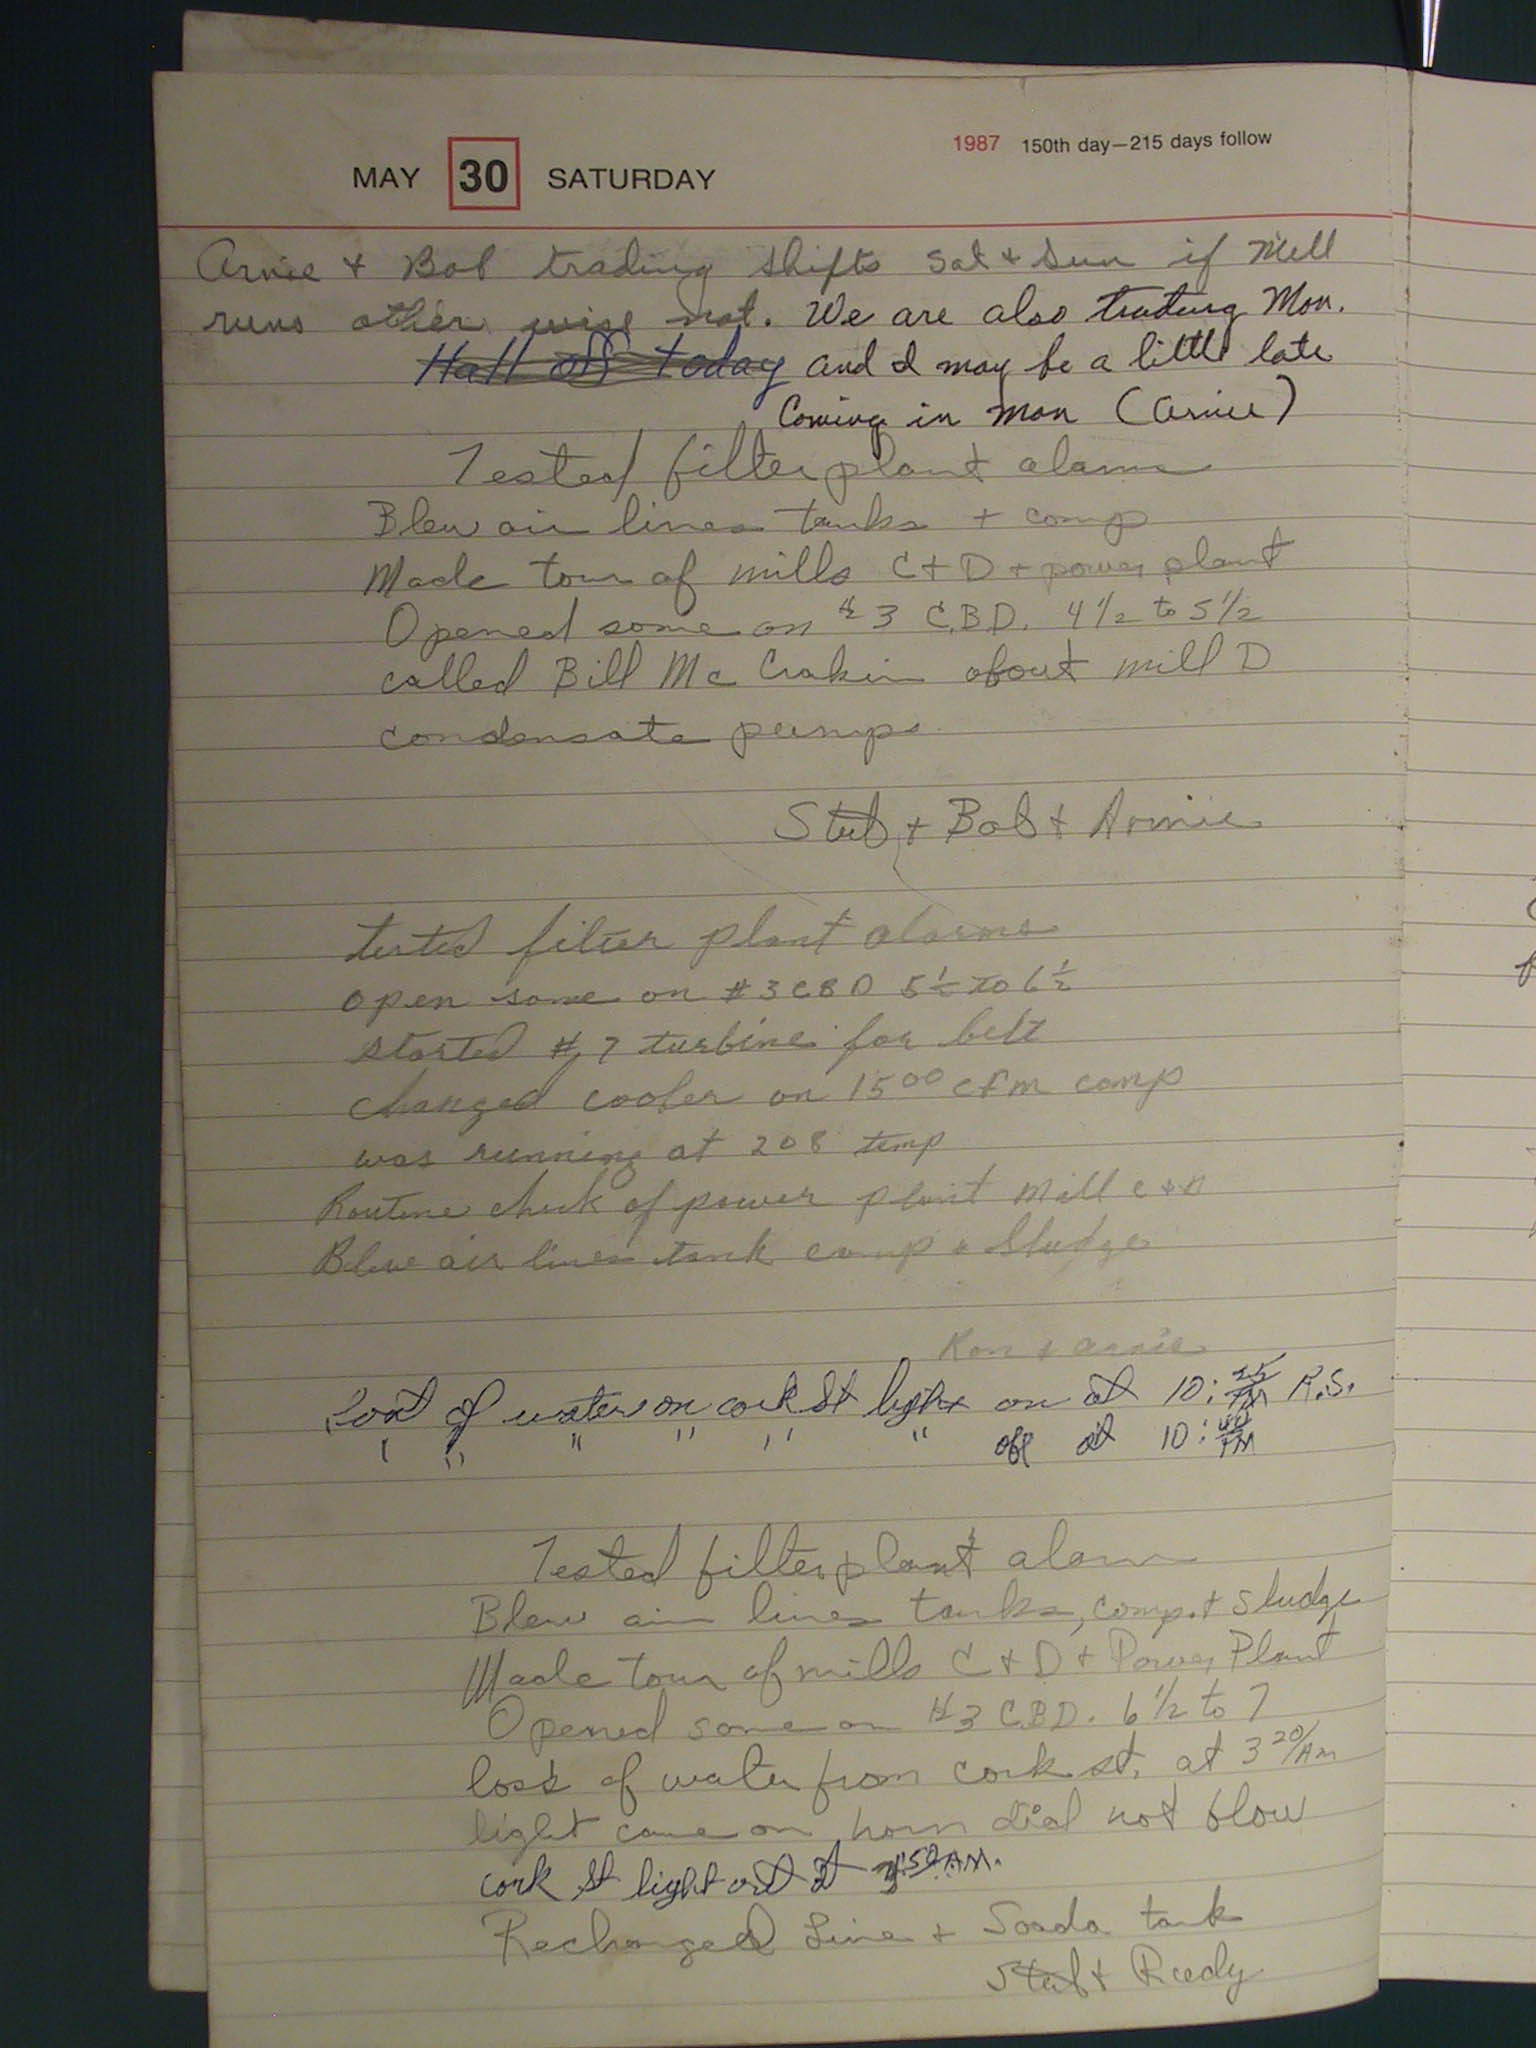 1987 150th day—215 days follow
MAY 30 SATURDAY
Arnie + Bob trading shifts Sat + Sun if Mill
runs other wise not. We are also trading Mon.
Hall off today and I may be a little late
Coming in Mon (Arnie)
Tested filter plant alarm
Blew air lines tanks + comp
Made tour of mills C + D + power plant
Opened some on #3 C.B.D. 4 1/2 to 5 1/2
called Bill Mc Crakin about mill D
condensate pumps
+ Bob + Arnie
tested filter plant alarms
open some on #3 CBD 5 1/2 to 6 1/2
started #7 turbine for belt
changed cooler on 1500 cfm comp
was running at 208 temp
Routine check of power plant Mill C + D
Blew air lines tank comp & sludge
Ron & Arnie
of water on cork St light on at 10:25 PM R.S.
" " " " " " off at 10:40 PM
Tested filter plant alarm
Blew air lines tanks, comp. + sludge
Made tour of mills C + D + Power Plant
Opened some on #3 C.B.D. 6 1/2 to 7
loss of water from cork st. at 3 20/AM
light came on horn did not blow
cork St light out at AM.
Recharged Lime + Soada tank
+ Reedy